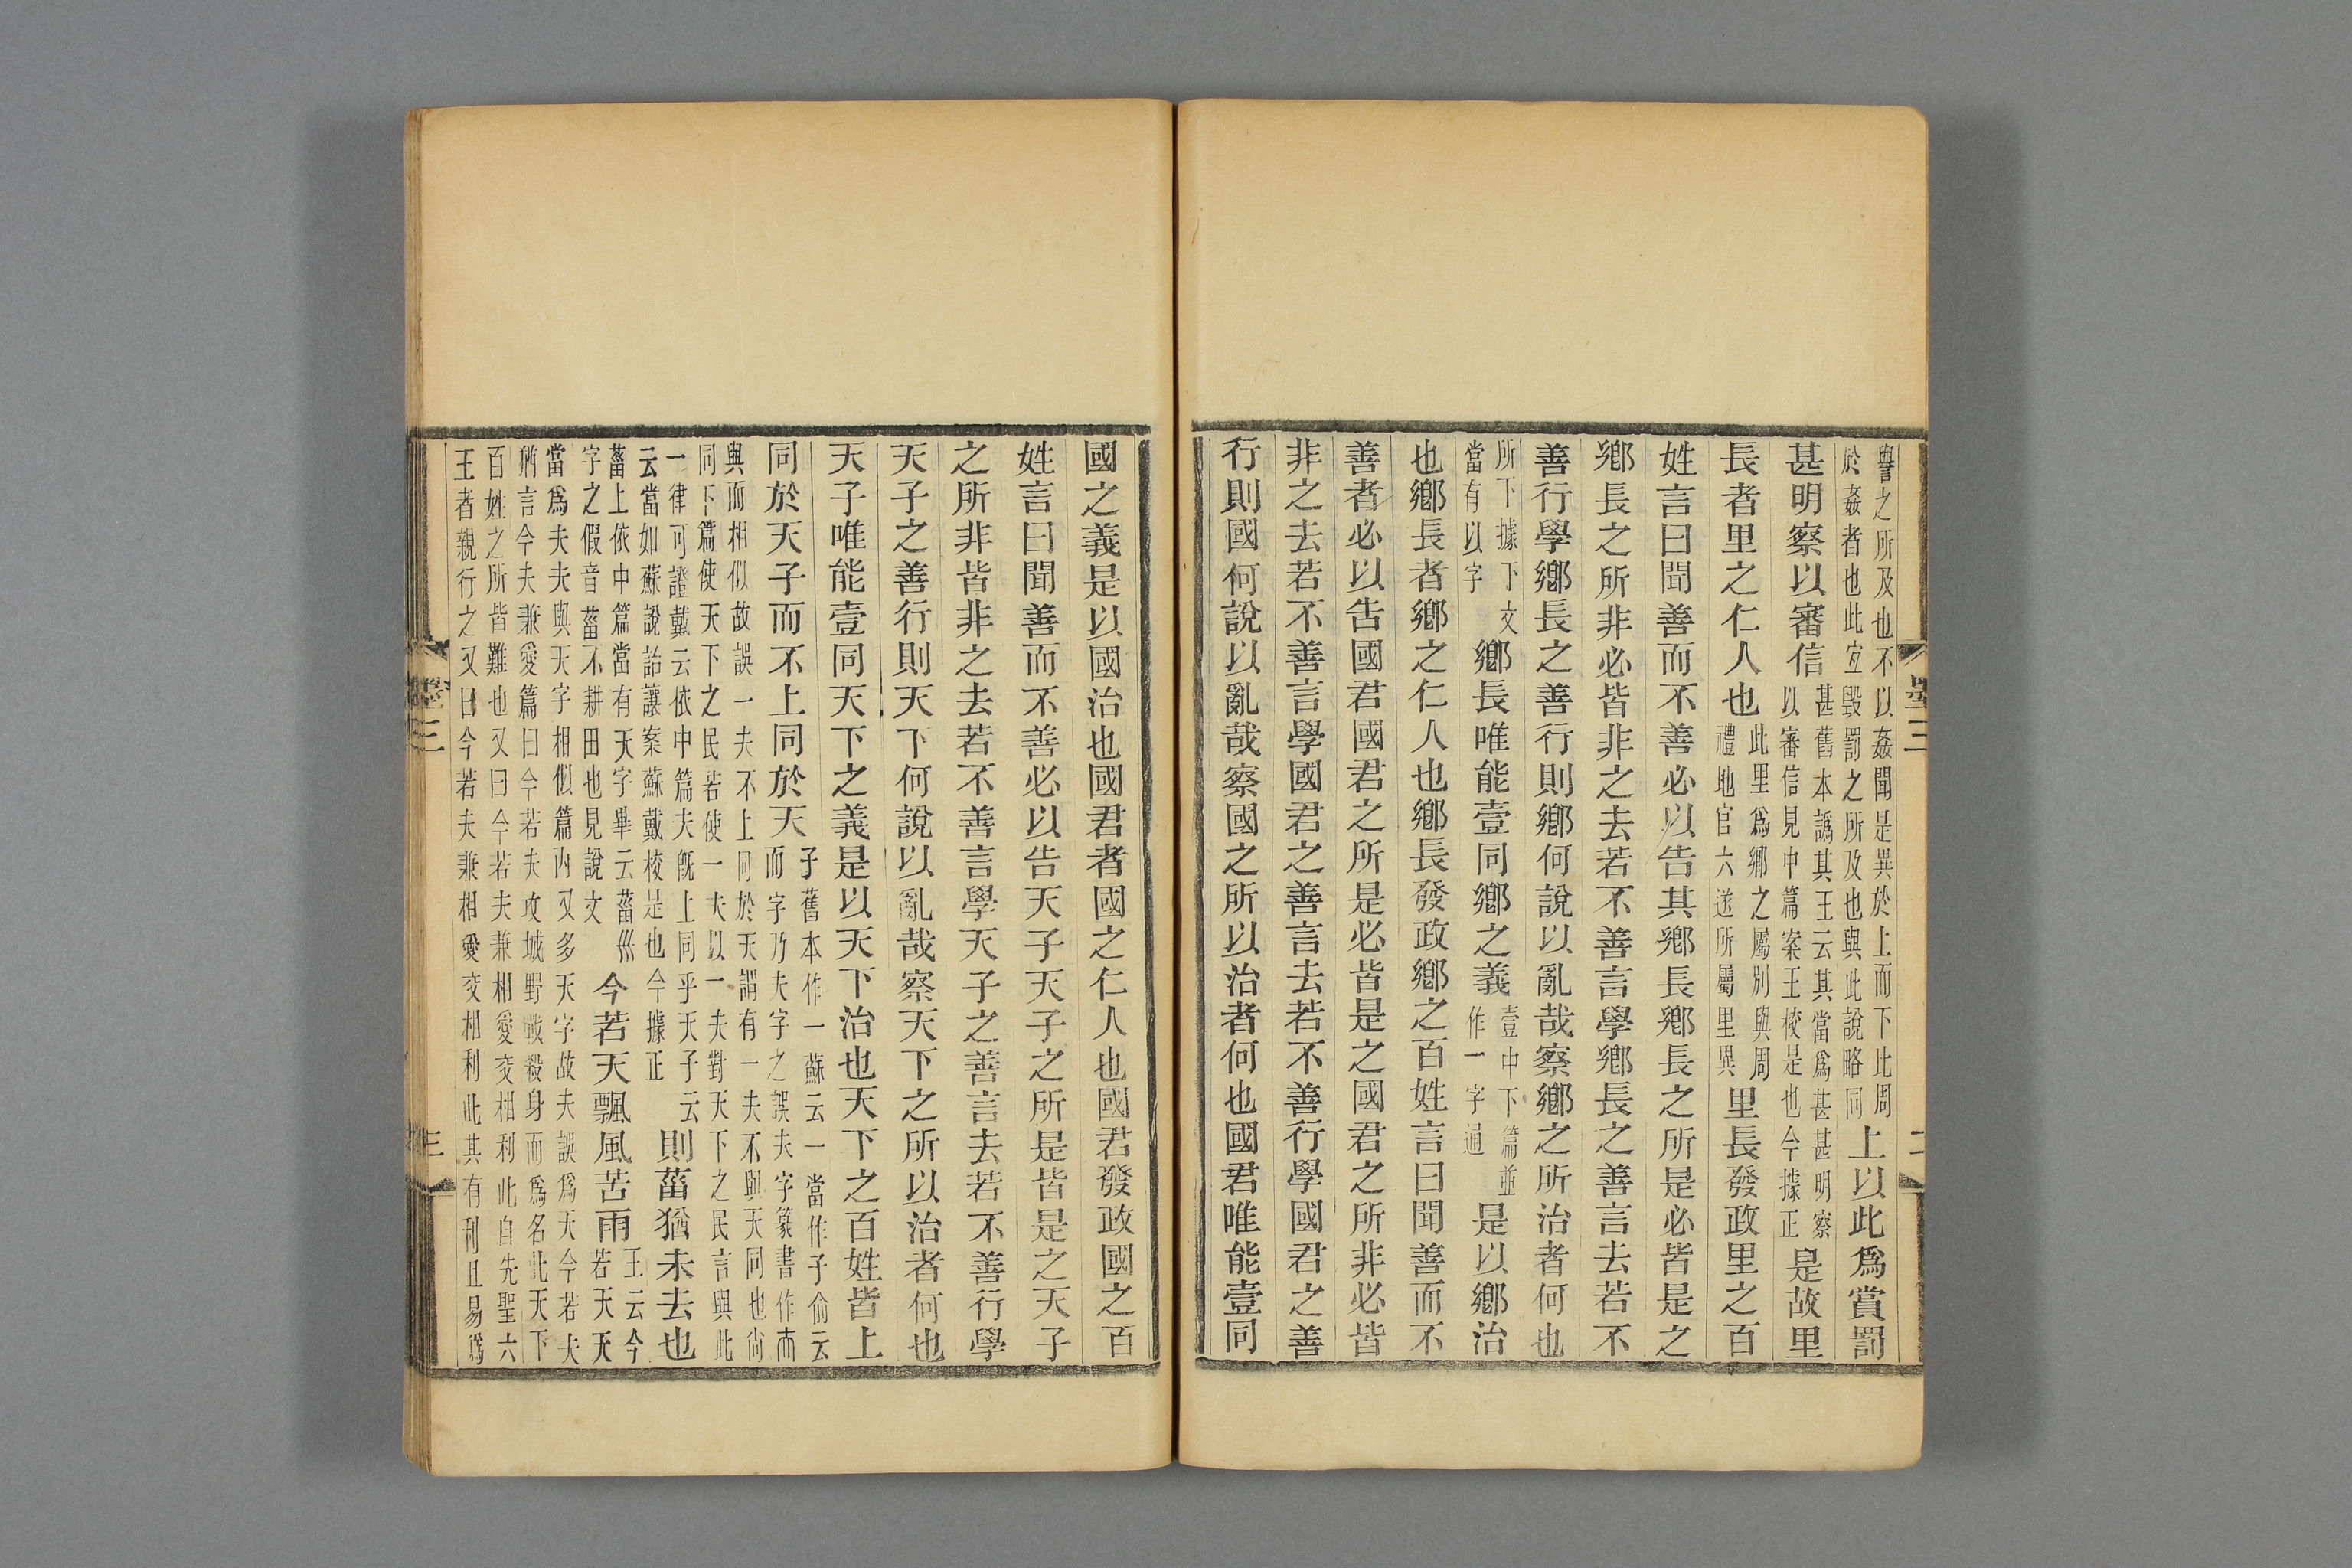 譽之所及也不以姦聞是異於上而下比周
於姦者也此宜毀罰之所及也與此說略同
上以此爲賞罰
甚明察以審信
甚舊本譌其王云其當爲甚甚明察
以審信見中篇案王校是也今據正
是故里
長者里之仁人也
此里爲鄉之屬別與周
禮地官六遂所屬里異
里長發政里之百
姓言曰聞善而不善必以告其鄉長鄉長之所是必皆是之
鄉長之所非必皆非之去若不善言學鄉長之善言去若不
善行學鄉長之善行則鄉何說以亂哉察鄉之所治者何也
所下據下文
當有以字
鄉長唯能壹同鄉之義
壹中下篇並
作一字通
是以鄉治
也鄉長者鄉之仁人也鄉長發政鄉之百姓言曰聞善而不
善者必以告國君國君之所是必皆是之國君之所非必皆
非之去若不善言學國君之善言去若不善行學國君之善
行則國何說以亂哉察國之所以治者何也國君唯能壹同
國之義是以國治也國君者國之仁人也國君發政國之百
姓言曰聞善而不善必以告天子天子之所是皆是之天子
之所非皆非之去若不善言學天子之善言去若不善行學
天子之善行則天下何說以亂哉察天下之所以治者何也
天子唯能壹同天下之義是以天下治也天下之百姓皆上
同於天子而不上同於天
子舊本作一蘇云一當作子俞云
而字乃夫字之誤夫字篆書作亣
與而相似故誤一夫不上同於天謂有一夫不與天同也尙
同下篇使天下之民若使一夫以一夫對天下之民言與此
一律可證戴云依中篇夫旣上同乎天子云
云當如蘇說詒讓案蘇戴校是也今據正
則菑猶未去也
菑上依中篇當有天字畢云菑巛
字之假音菑不耕田也見說文
今若天飄風苦雨
王云今
若天天
當爲夫夫與天字相似篇內又多天字故夫誤爲天今若夫
猶言今夫兼愛篇曰今若夫攻城野戰殺身而爲名此天下
百姓之所皆難也又曰今若夫兼相愛交相利此自先聖六
王者親行之又曰今若夫兼相愛交相利此其有利且易爲
墨三
二
墨三
三